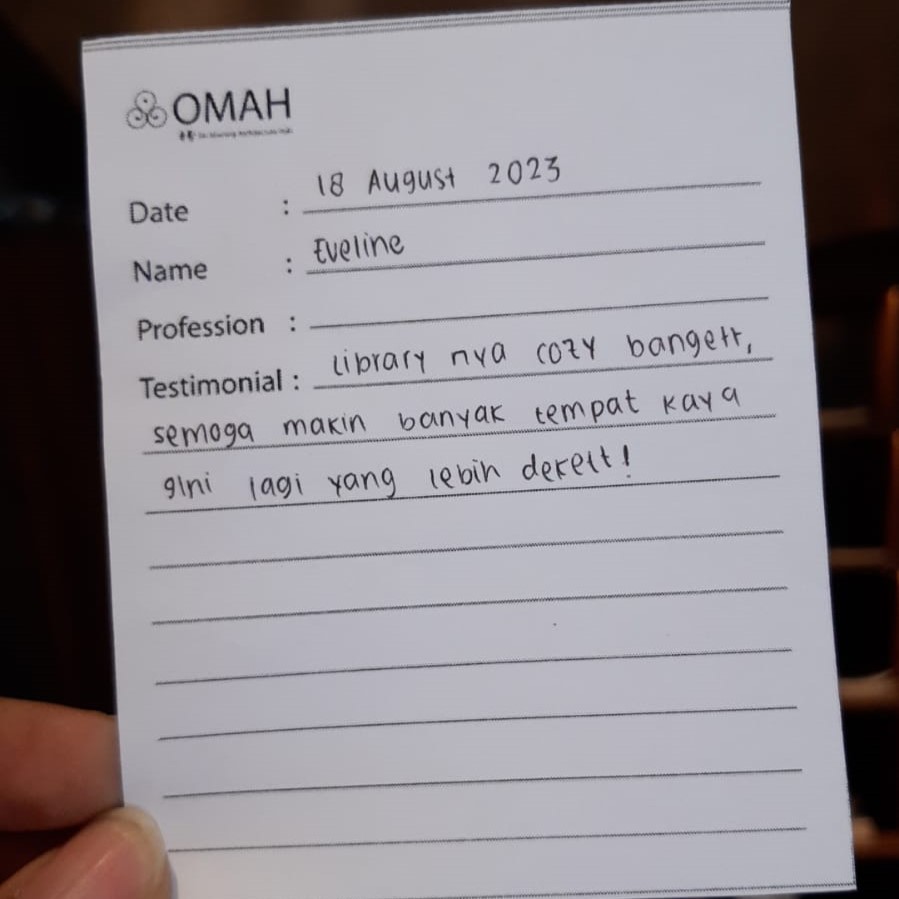 OMAH
Date : 18 August 2023
Name : Eveline
Profession :
Testimonial : library nya cozy bangett,
semoga makin banyak tempat kaya
gini lagi yang lebih dekett!